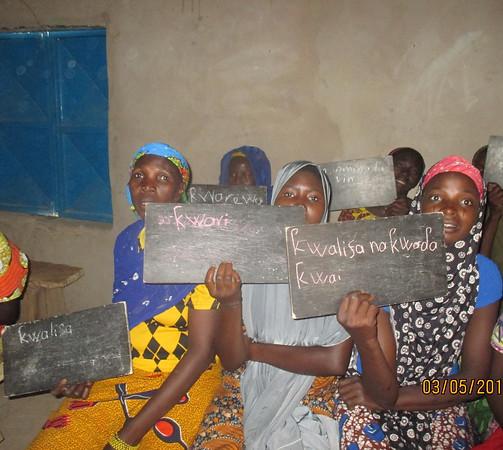 kwarewa
kwari
kwalisa na kwada
kwai
kwalisa
03/05/201